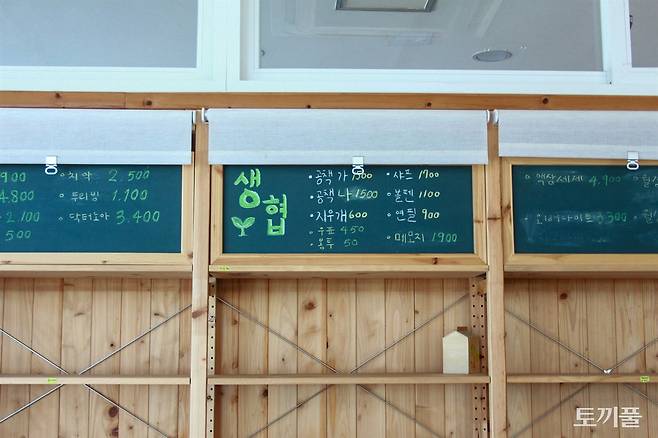 900
4.800
2.100
500
치약 2.500
뚜러빙 1.100
닥터노아 3.400
생협
공책 가 1300
공책 나 1500
지우개 600
우표 450
봉투 50
샤프 1900
볼펜 1100
연필 900
메모지 1900
액상세제 4.900
300
토끼풀